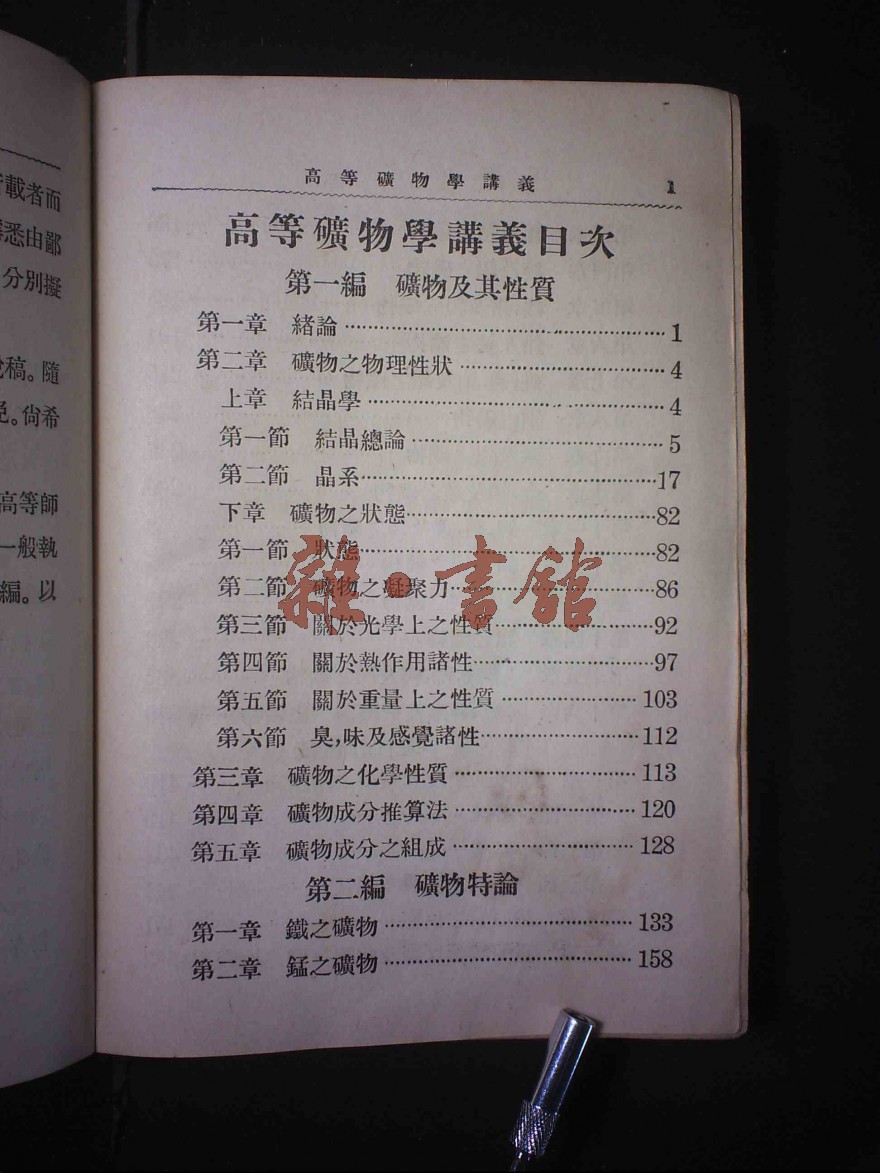 載者而
悉由鄙
分別擬
稿。隨
。尙希
高等師
一般執
編。以
高等礦物學講義 1
高等礦物學講義目次
第一編 礦物及其性質
第一章 緒論 1
第二章 礦物之物理性狀 4
上章 結晶學 4
第一節 結晶總論 5
第二節 晶系 17
下章 礦物之狀態 82
第一節 狀態 82
第二節 礦物之凝聚力 86
第三節 關於光學上之性質 92
第四節 關於熱作用諸性 97
第五節 關於重量上之性質 103
第六節 臭,味及感覺諸性 112
第三章 礦物之化學性質 113
第四章 礦物成分推算法 120
第五章 礦物成分之組成 128
第二編 礦物特論
第一章 鐵之礦物 133
第二章 錳之礦物 158
雜·書館